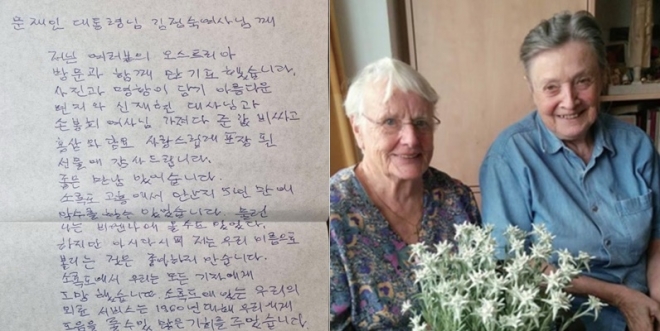 문재인 대통령님 김정숙여사님께
저는 여러분의 오스트리아
방문과 함께 한 기도 했습니다.
사진과 명함이 담기 아름다운
편지와 신재현 대사님과
가져다 준 값 비싸고
홍삼와 담요 사랑스럽게 포장 된
선물에 감사드립니다.
좋은 만남 있었습니다.
소록도 고흥에서 만난지 5년 만에
악수를 했습니다.
저는 비엔나에 갈 수도 있었다.
하지만 아시다시피 저는 우리 이름으로
불리는 것은 좋아하지 안습니다.
소록도에서 우리는 모든 기자에게
도망 했습니다. 소록도에 있는 우리의
의료 서비스는 1960년대 우리에게
도움을 줄 수 있 많은 기회를 주었습니다.